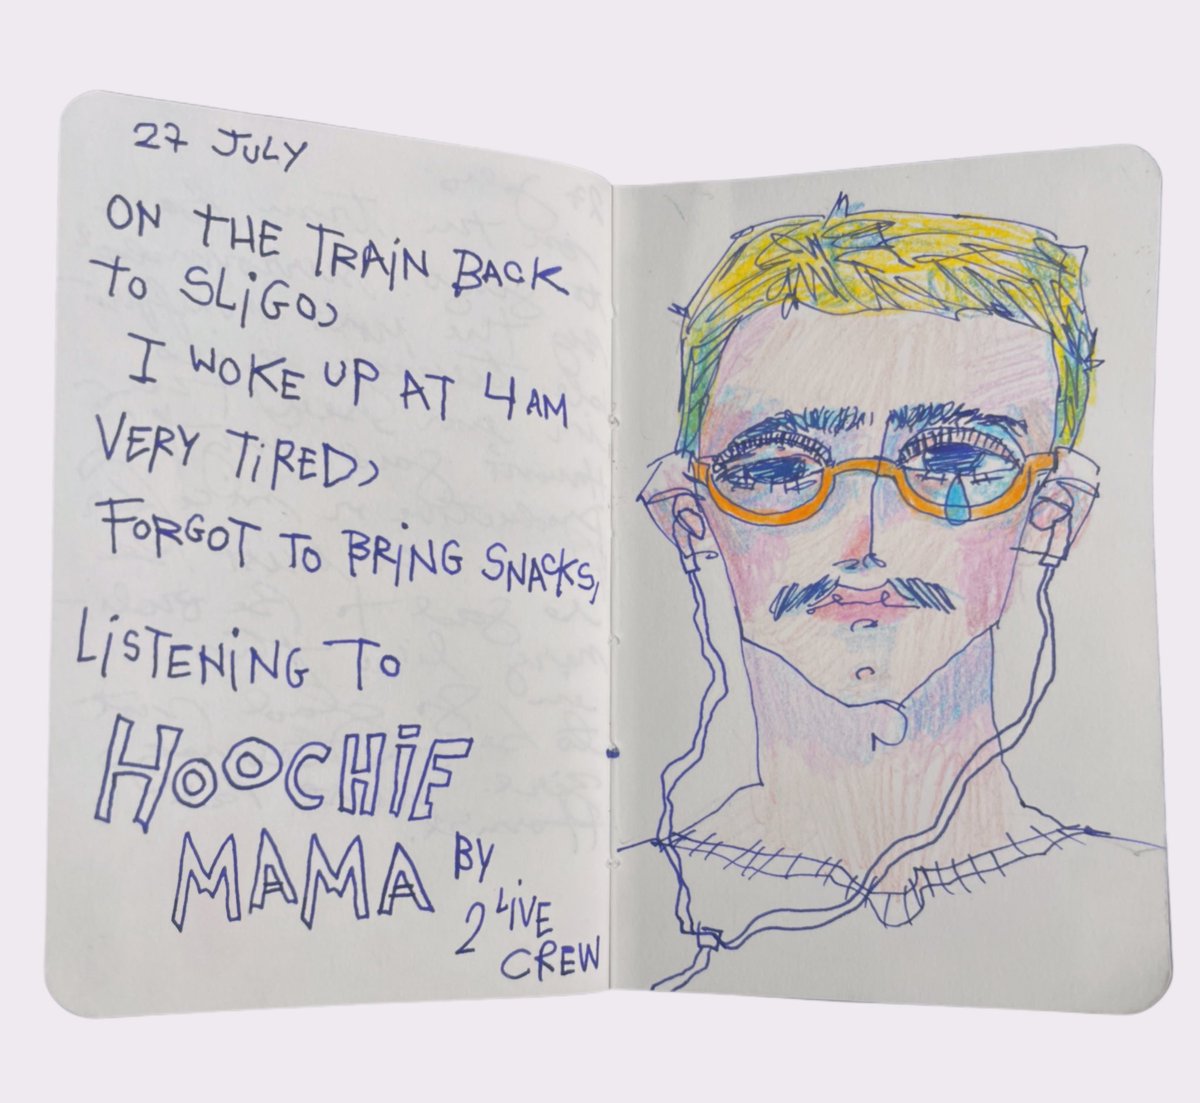 27 JULY
ON THE TRAIN BACK
TO SLIGO,
I WOKE UP AT 4AM
VERY TIRED,
FORGOT TO BRING SNACKS,
LISTENING TO
HOOCHIE
MAMA BY
2 LIVE
CREW